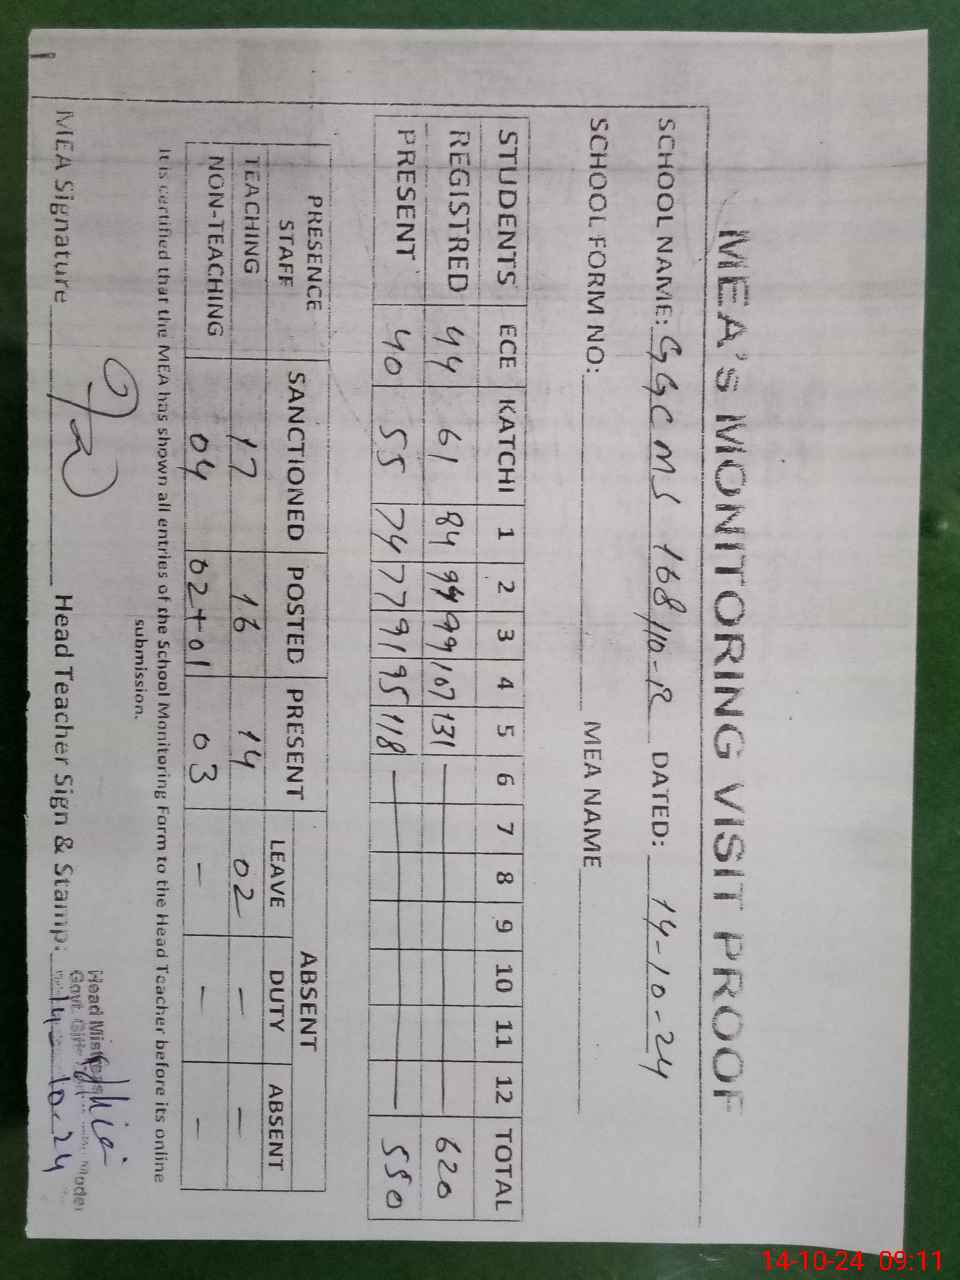 MEA'S MONITORING VISIT PROOF
SCHOOL NAME: GGCMS 168/10-R DATED: 14-10-24
SCHOOL FORM NO: MEA NAME
STUDENTS ECE KATCHI 1 2 3 4 5 6 7 8 9 10 11 12 TOTAL
REGISTRED 44 61 84 94 99 107 131 — 620
PRESENT 40 55 74 77 91 95 118 — 550
PRESENCE STAFF SANCTIONED POSTED PRESENT ABSENT
LEAVE DUTY ABSENT
TEACHING 17 16 14 02 - -
NON-TEACHING 04 02+01 03 - - -
It is certified that the MEA has shown all entries of the School Monitoring Form to the Head Teacher before its online
submission.
MEA Signature Head Teacher Sign & Stamp:
Head Mistress
Govt. Girls
14-10-24
14-10-24 09:11